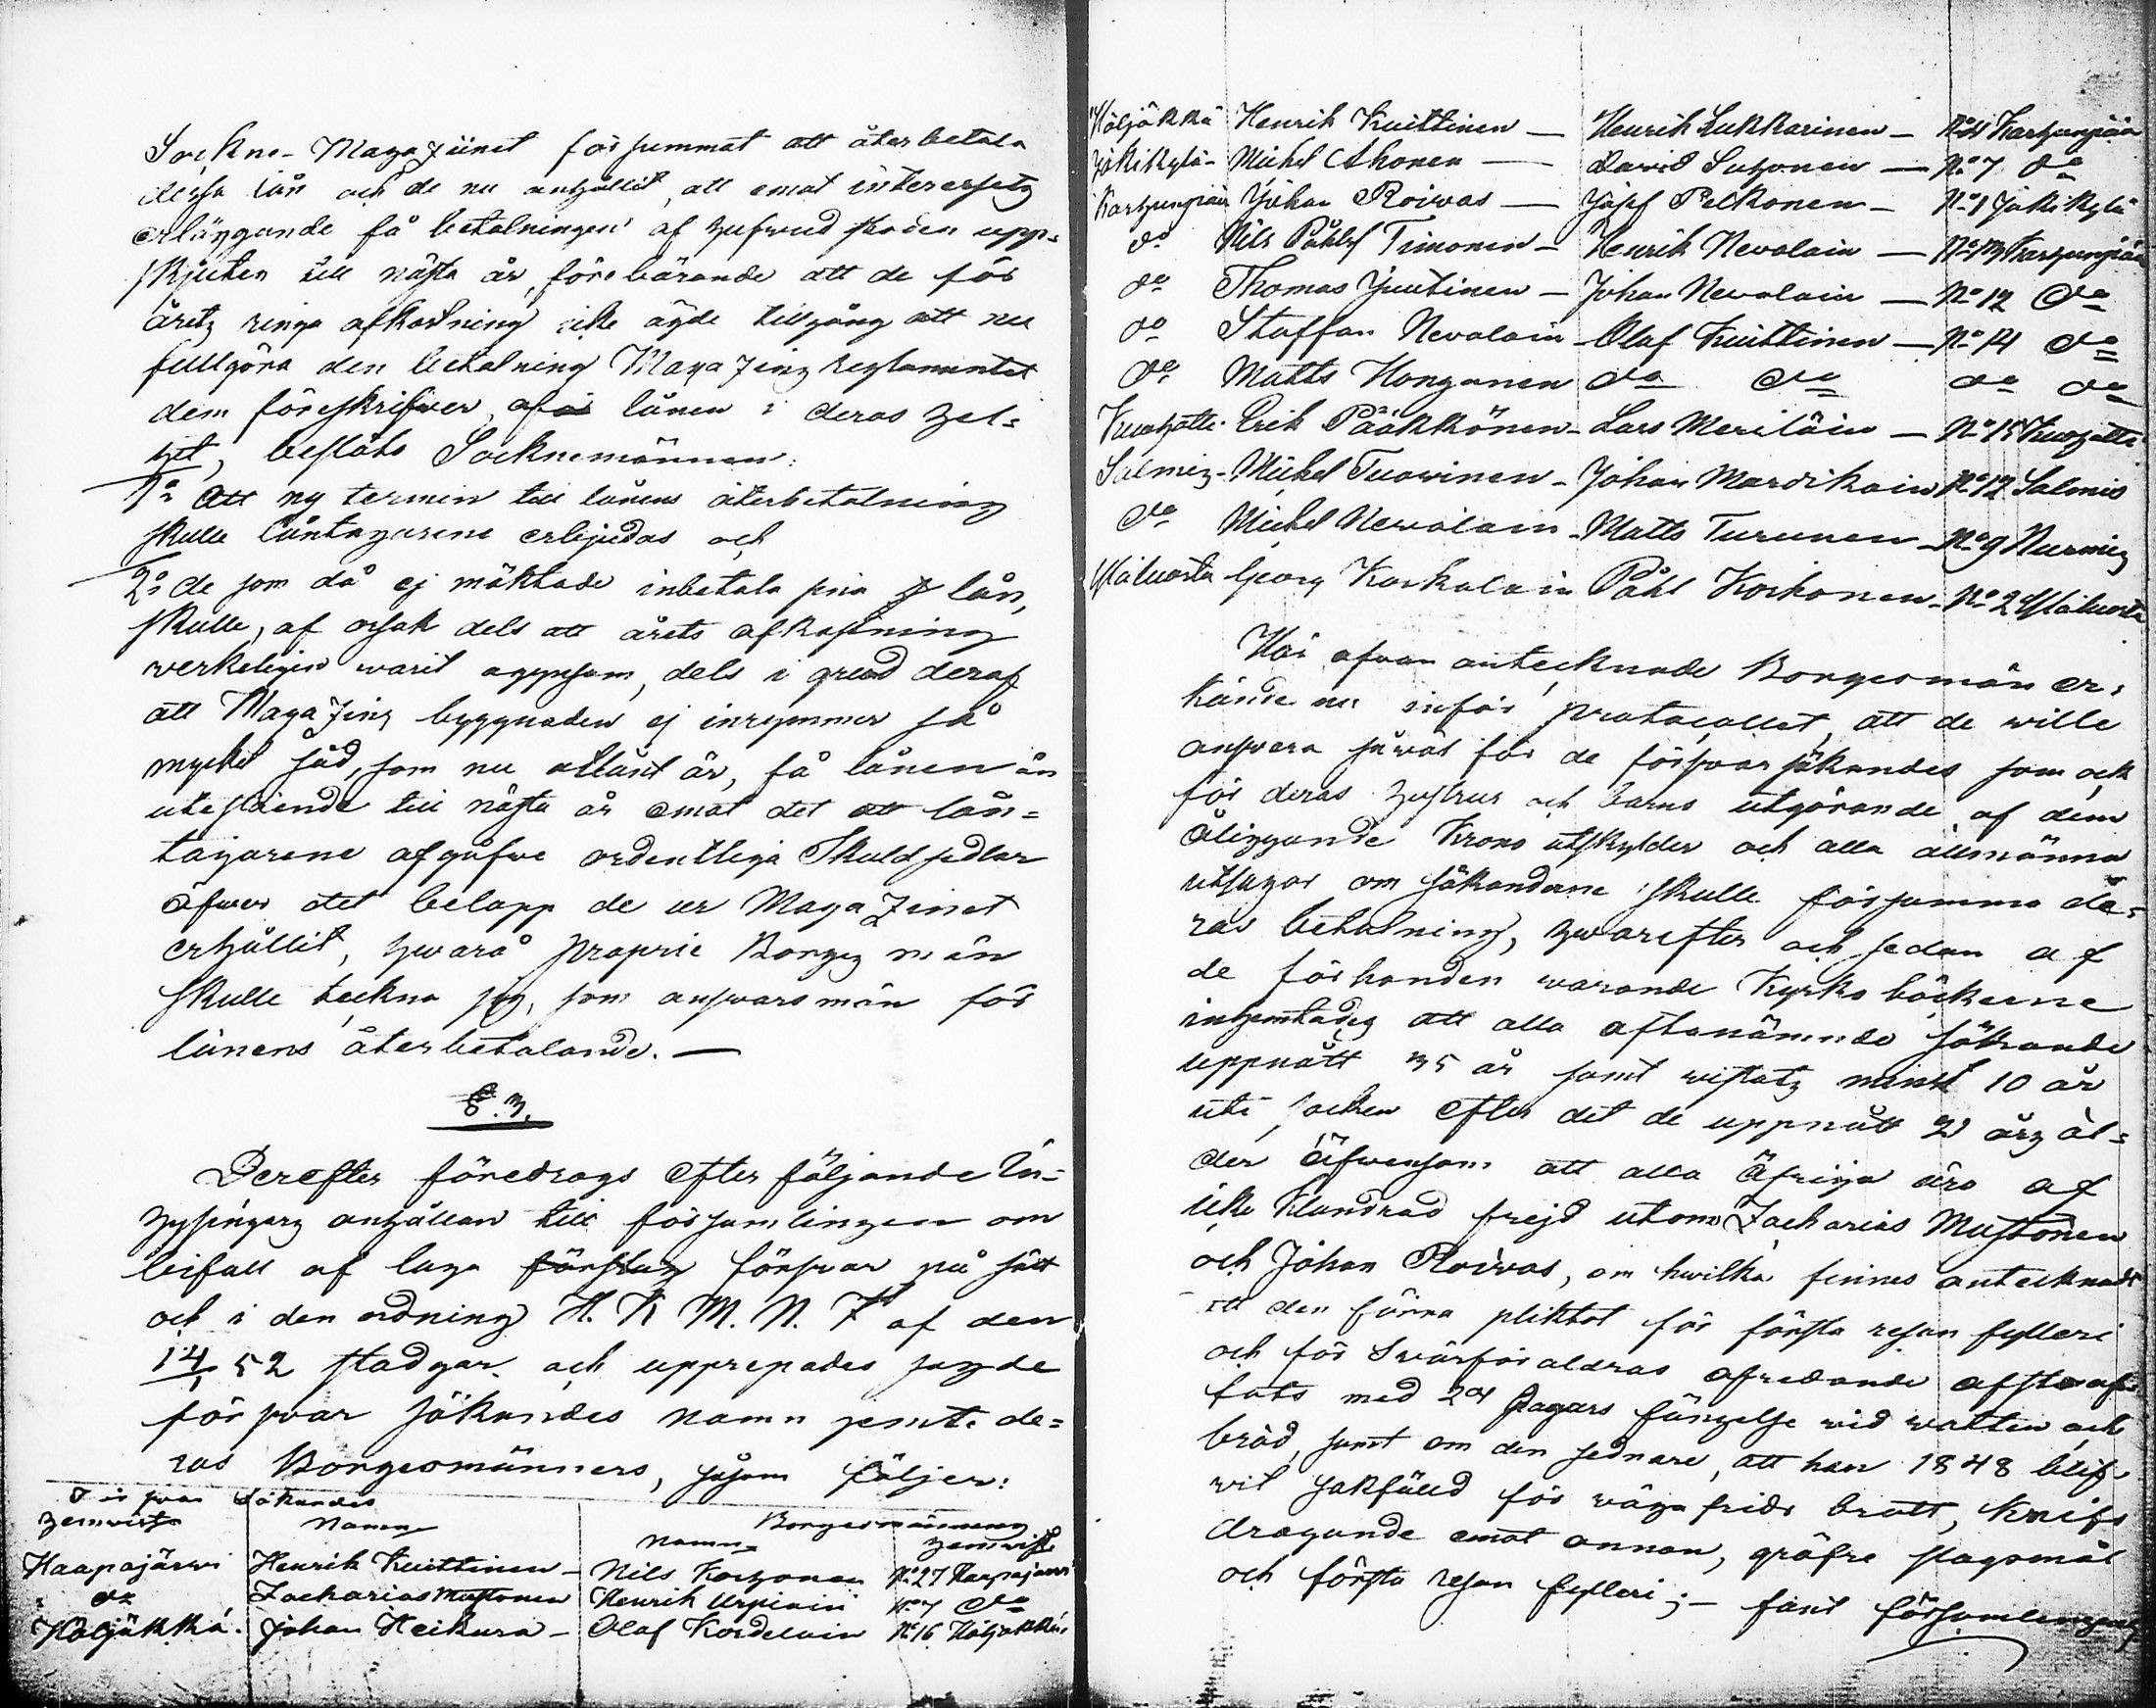 Sockne-Magazinet försummat att återbetala
dessa lån och de nu anhållit, att emot interersets
erlängande få betalningen af hufvud skoden upp-
skjuten till nästa år, förebärande att de för
åretz ringa afkastning icke ägde tillgång att nu
fullgöra den betalning Magazins reglamentet
dem föreskrifver, af lånen i deras hel-
het, beslöto Socknemännen:
1o Att ny termin till lånens återbetalning
skulle låntagarene erbjudas och
2o de som då ej mäktade inbetala sina lån,
skulle, af orsak dels att årets afkastning
verkeligen warit ogynsam, dels i grund deraf
att Magazins byggnaden ej inrymmer så
mycket säd, som nu utlånt är, få lånen än
utestående till nästa år emot det att lån-
tagarene afgåfwe ordentliga Skuldsedlar
öfwer det belopp de ur Magazinet
erhållit, hwarå proprie Borges män
skulle teckna sig, som answarsmän för
lånens återbetalande. —
§. 3.
Derefter föredrogs efter följande In-
hysingars anhållan till församlingen om
bifall af laga förslag försvar på sätt
och i den ordning H. K. M. N. F. af den
14/ 52 stadgar. och upprepades sagde
försvar sökandes namn jemte de-
ras Borgesmänners, såsom följer:
Försvar Sökandes Borgesmännens
hemvist Namn Namn hemvist
Haapajärwi Henrik Kuittinen - Nils Korhonen No 27 Haapajärwi
do Zacharias Mustonen Henrik Urpiain No 7 do
Höljäkkä. Johan Heikura - Olaf Kordelain No 16 Höljäkkä
Höljäkkä Henrik Kuittinen — Henrik Lukkarinen — Karhunpää
Jokikylä - Michel Ahonen — David Suhonen — No 7 do
Karhunpää Johan Roiwas — Josef Pelkonen — No 1 Jokikylä
do Nils Påhlsf Timonen — Henrik Nevalain — Karhunpää
do Thomas Juutinen — Johan Nevalain — No 12 do
do Staffan Nevalain - Olaf Kuittinen — No 14 do
do Matts Honganen do do do do
Kuohatti - Erik Pääkkönen - Lars Meriläin — No 15 Kuohatti
Salmis - Michel Tuovinen - Johan Mardikain No 12 Salmis
do Michel Nevalain - Matts Turunen - No 9 Nurmis
Georg Karkalain Påhl Korhonen - No 2
Här ofvan antecknade Borgesmän er-
kände nu inför protocollet, att de wille
answara såwäl för de försvarsökandes som ock
för deras hustrur och barns utgörande af dem
åliggande Krono utskylder och alla allmänna
utlagor om sökanderne skulle försumma de-
ras betalning, hwarefter och sedan af
de för handen warande Kyrko böckerne
inhemtades att alla oftanämnde sökande
uppnått 35 år samt wistats minst 10 år
uti socken efter det de uppnått 21 års ål-
der äfwensom att alla öfriga äro af
icke klandrad frejd utom Zacharias Mustonen
och Johan Roiwas, om hwilka finnes antecknadt
att den förra pliktat för första resan fylleri
och för Swärföräldras ofredande afstraf-
fats med 24 dagars fängelse wid watten och
bröd, samt om den sednare, att han 1848 blif-
vit sakfälld för wäga frids brott, Knifs
dragande emot annan, gröfre slagsmål
och första resan fylleri; — fant församlingens